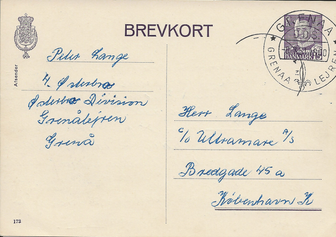 BREVKORT
Afsender
Peter Lange
4. Østerbro
Østerbro Division
Grenålejren
Grenå
GRENAA LEJREN
Herr Lange
c/o Ultramare A/S
Bredgade 45 a
København K
173